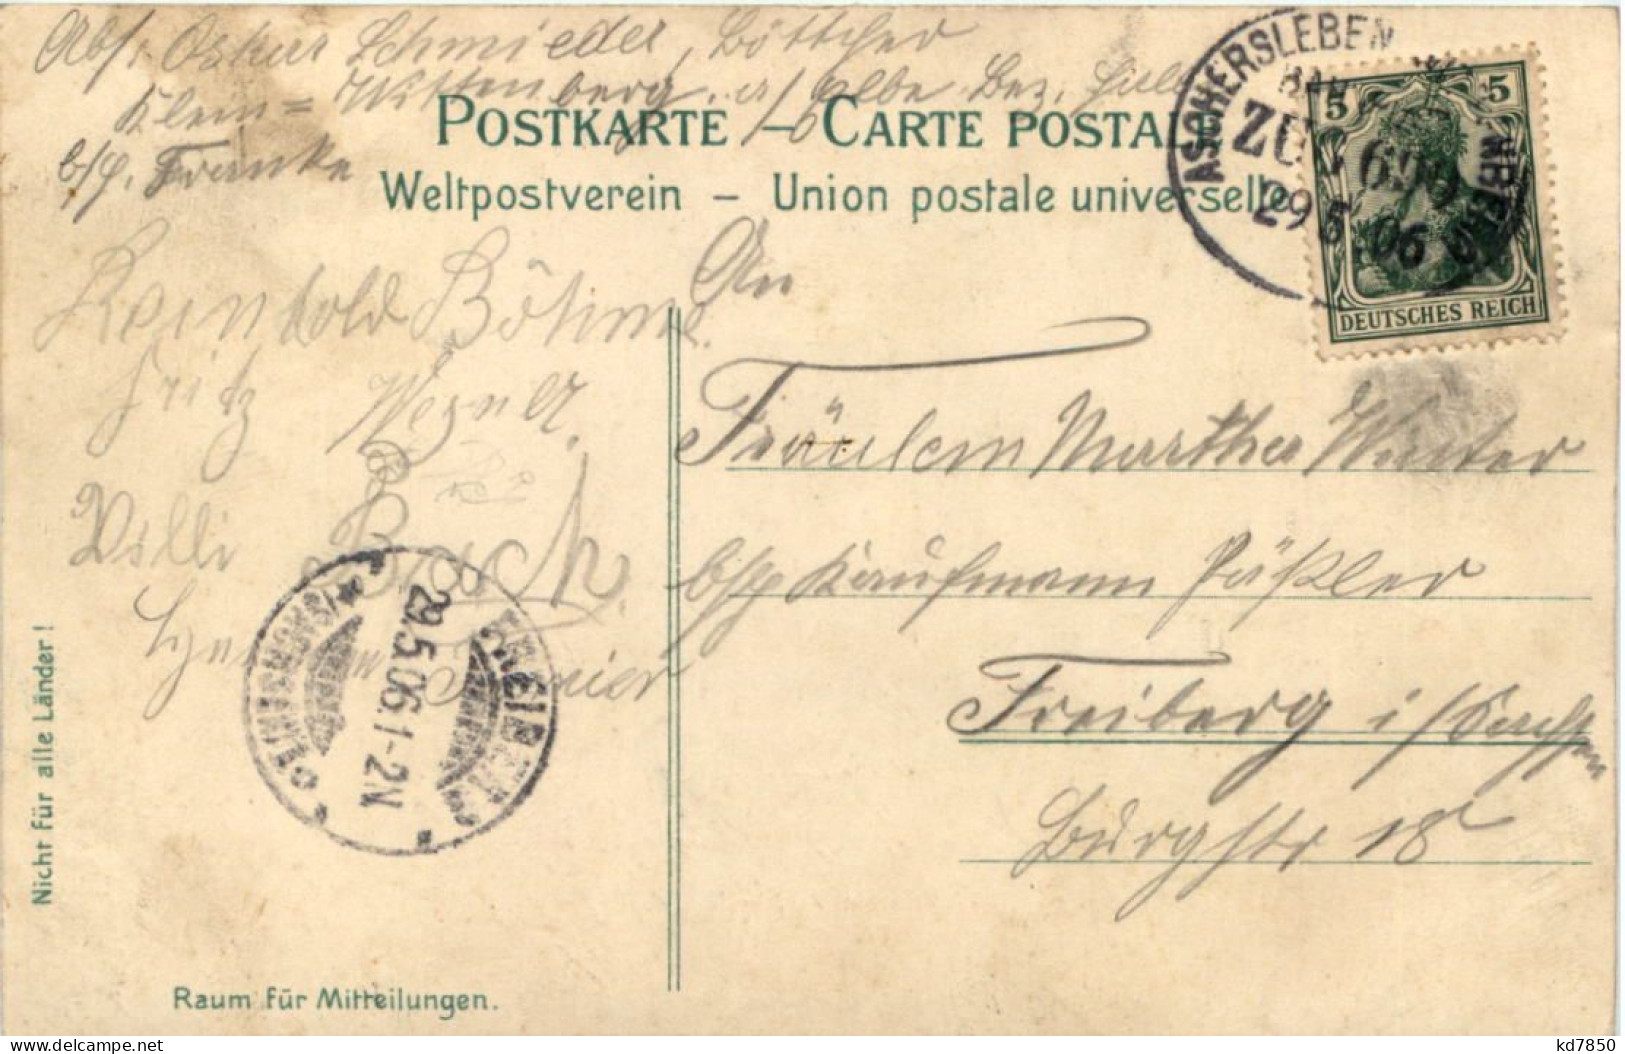 Abs. Oskar Schmieder, Böttcher
Klein=Wittenberg. a/Elbe Bez. Halle
b/H. Franke
POSTKARTE – CARTE POSTALE
Weltpostverein – Union postale universelle
ASCHERSLEBEN
ZUG 699
29 5 06
5 5
DEUTSCHES REICH
An
Reinhold Böhme.
Fritz Wegner.
Willi Bach.
Fräulein Martha Winter
b/H. Kaufmann Päßler
Freiberg i/Sachsen
Burgstr 18
FREIBERG
29.5.06.1-2N
(SACHSEN)
Nicht für alle Länder!
Raum für Mitteilungen.
kd7850